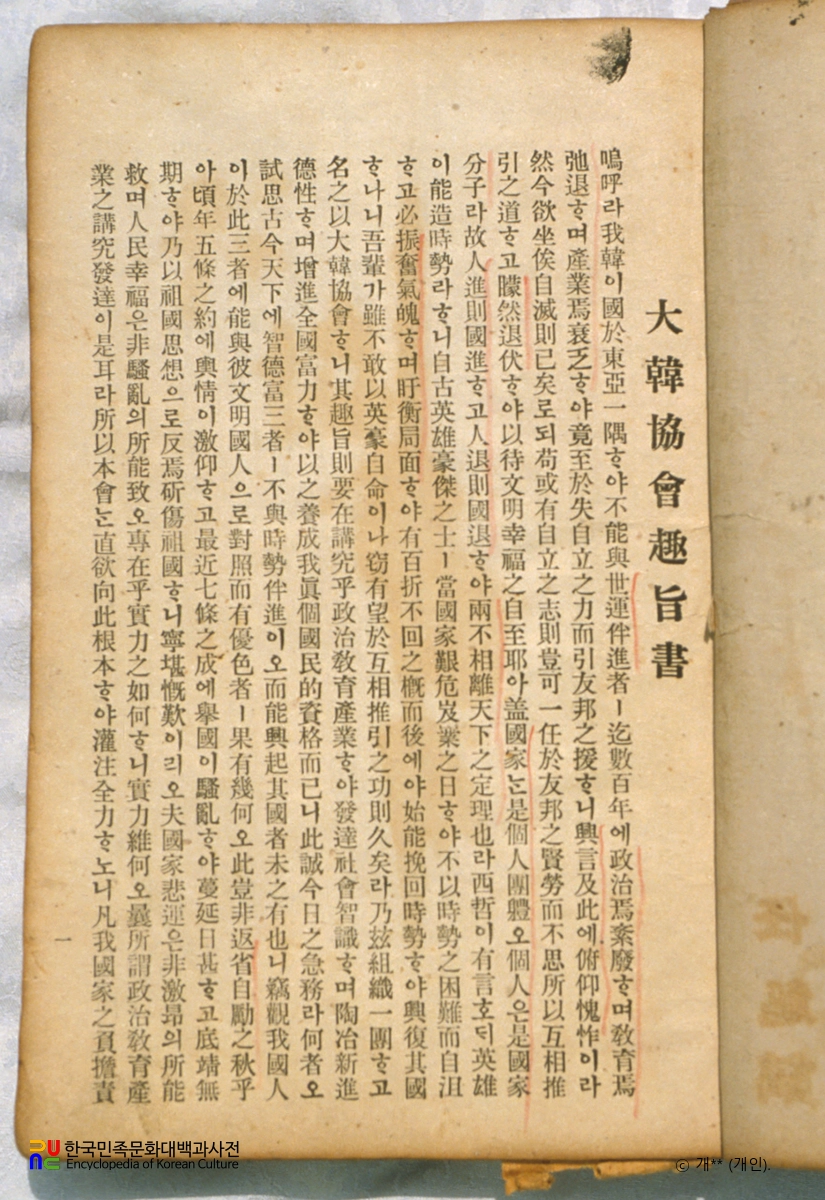 大韓協會趣旨書
嗚呼라我韓이國於東亞一隅ᄒᆞ야不能與世運伴進者ㅣ迄數百年에政治焉紊廢ᄒᆞ며敎育焉
弛退ᄒᆞ며產業焉衰乏ᄒᆞ야竟至於失自立之力而引友邦之援ᄒᆞ니興言及此에俯仰愧怍이라
然今欲坐俟自滅則已矣로되苟或有自立之志則豈可一任於友邦之賢勞而不思所以互相推
引之道ᄒᆞ고朦然退伏ᄒᆞ야以待文明幸福之自至耶아盖國家ᄂᆞᆫ是個人團軆오個人은是國家
分子라故人進則國進ᄒᆞ고人退則國退ᄒᆞ야兩不相離天下之定理也라西哲이有言호ᄃᆡ英雄
이能造時勢라ᄒᆞ니自古英雄豪傑之士ㅣ當國家艱危岌嶪之日ᄒᆞ야不以時勢之困難而自沮
ᄒᆞ고必振奮氣魄ᄒᆞ며盱衡局面ᄒᆞ야有百折不回之槪而後에야始能挽回時勢ᄒᆞ야興復其國
ᄒᆞ나니吾輩가雖不敢以英豪自命이나窃有望於互相推引之功則久矣라乃玆組織一團ᄒᆞ고
名之以大韓協會ᄒᆞ니其趣旨則要在講究乎政治敎育產業ᄒᆞ야發達社會智識ᄒᆞ며陶冶新進
德性ᄒᆞ며增進全國富力ᄒᆞ야以之養成我眞個國民的資格而已니此誠今日之急務라何者오
試思古今天下에智德富三者ㅣ不與時勢伴進이오而能興起其國者未之有也니竊觀我國人
이於此三者에能與彼文明國人으로對照而有優色者ㅣ果有幾何오此豈非返省自勵之秋乎
아頃年五條之約에輿情이激仰ᄒᆞ고最近七條之成에擧國이騷亂ᄒᆞ야蔓延日甚ᄒᆞ고底靖無
期ᄒᆞ야乃以祖國思想으로反焉斫傷祖國ᄒᆞ니寧堪慨歎이리오夫國家悲運은非激昂의所能
救며人民幸福은非騷亂의所能致오專在乎實力之如何ᄒᆞ니實力維何오曩所謂政治敎育產
業之講究發達이是耳라所以本會ᄂᆞᆫ直欲向此根本ᄒᆞ야灌注全力ᄒᆞ노니凡我國家之負擔責
一
한국민족문화대백과사전
Encyclopedia of Korean Culture
© 개** (개인).